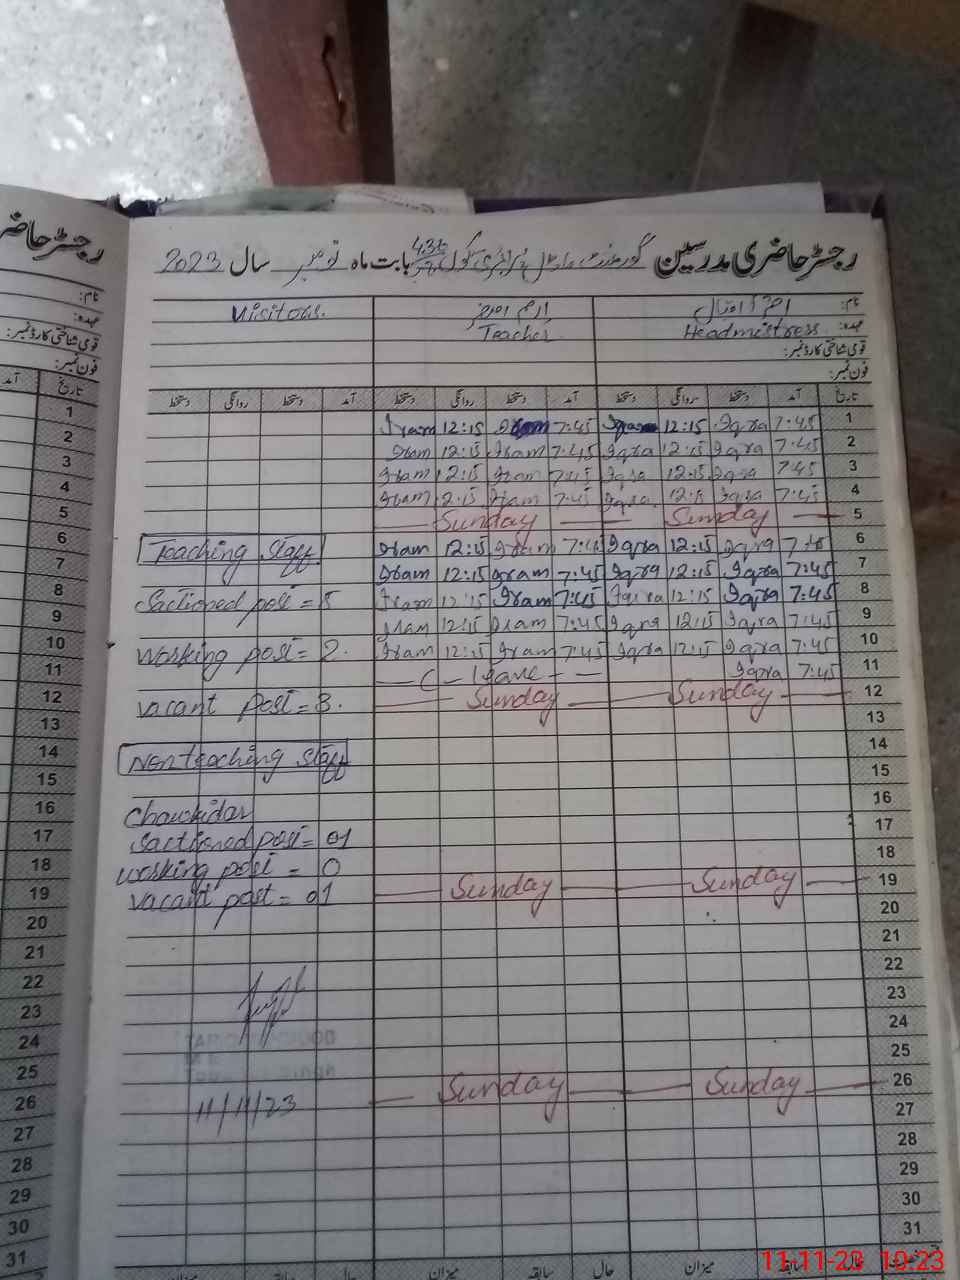 رجسٹر حاضری مدرسین گورنمنٹ ماڈل پرائمری سکول بابت ماہ نومبر سال 2023
نام: اقراء اقبال ارم Visitors.
عہدہ: Headmistress Teacher
قومی شناختی کارڈ نمبر:
فون نمبر:
تاریخ آمد دستخط روانگی دستخط آمد دستخط روانگی دستخط آمد دستخط روانگی دستخط
Iram 12:15 Iram 7:45 Iqra 12:15 Iqra 7:45 1
Iram 12:15 Iram 7:45 Iqra 12:15 Iqra 7:45 2
Iram 12:15 Iram 7:45 Iqra 12:15 Iqra 7:45 3
Iram 12:15 Iram 7:45 Iqra 12:15 Iqra 7:45 4
Sunday Sunday 5
Teaching Staff Iram 12:15 Iram 7:45 Iqra 12:15 Iqra 7:45 6
Iram 12:15 Iram 7:45 Iqra 12:15 Iqra 7:45 7
Sactioned post = 5 Iram 12:15 Iram 7:45 Iqra 12:15 Iqra 7:45 8
Iram 12:15 Iram 7:45 Iqra 12:15 Iqra 7:45 9
Working post = 2. Iram 12:15 Iram 7:45 Iqra 12:15 Iqra 7:45 10
C - leave - Iqra 7:45 11
vacant post = 3. Sunday Sunday 12
13
Non teaching Staff 14
15
16
Chowkidar 17
Sactioned post = 01
18
working post = 0
vacant post = 01 Sunday Sunday 19
20
21
22
23
24
25
11/11/23 Sunday Sunday 26
27
28
29
30
31
میزان سابقہ حال میزان سابقہ حال
رجسٹر حاضر
نام:
عہدہ:
قومی شناختی کارڈ نمبر:
فون نمبر:
تاریخ آمد
1
2
3
4
5
6
7
8
9
10
11
12
13
14
15
16
17
18
19
20
21
22
23
24
25
26
27
28
29
30
31
11-11-23 10:23